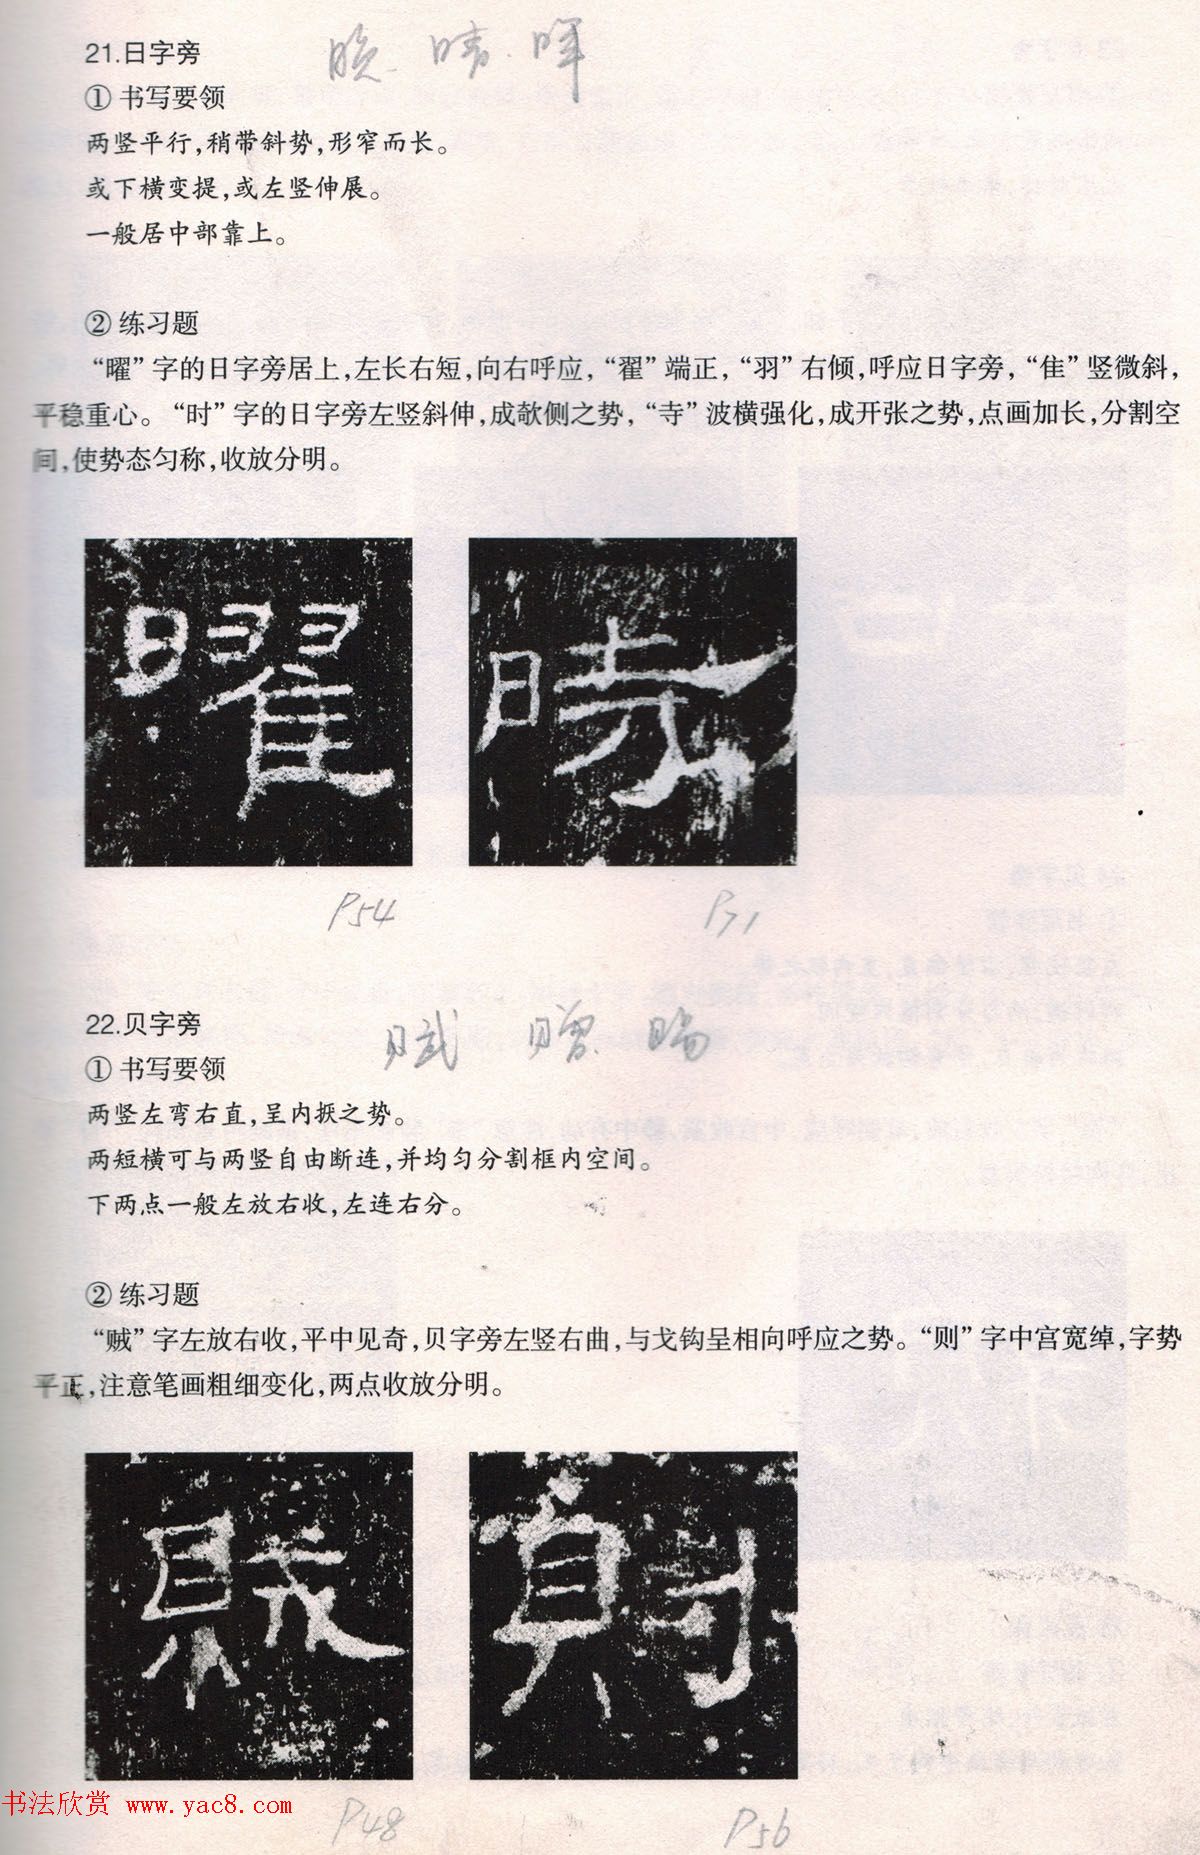 21.日字旁 晓 晴 晖
① 书写要领
两竖平行,稍带斜势,形窄而长。
或下横变提,或左竖伸展。
一般居中部靠上。
② 练习题
“曜”字的日字旁居上,左长右短,向右呼应,“翟”端正,“羽”右倾,呼应日字旁,“隹”竖微斜,
平稳重心。“时”字的日字旁左竖斜伸,成欹侧之势,“寺”波横强化,成开张之势,点画加长,分割空
间,使势态匀称,收放分明。
曜 時
P54 P71
22.贝字旁 赋 赠 赐
① 书写要领
两竖左弯右直,呈内抠之势。
两短横可与两竖自由断连,并均匀分割框内空间。
下两点一般左放右收,左连右分。
② 练习题
“贼”字左放右收,平中见奇,贝字旁左竖右曲,与戈钩呈相向呼应之势。“则”字中宫宽绰,字势
平正,注意笔画粗细变化,两点收放分明。
賊 則
P48 P56
书法欣赏 www.yac8.com